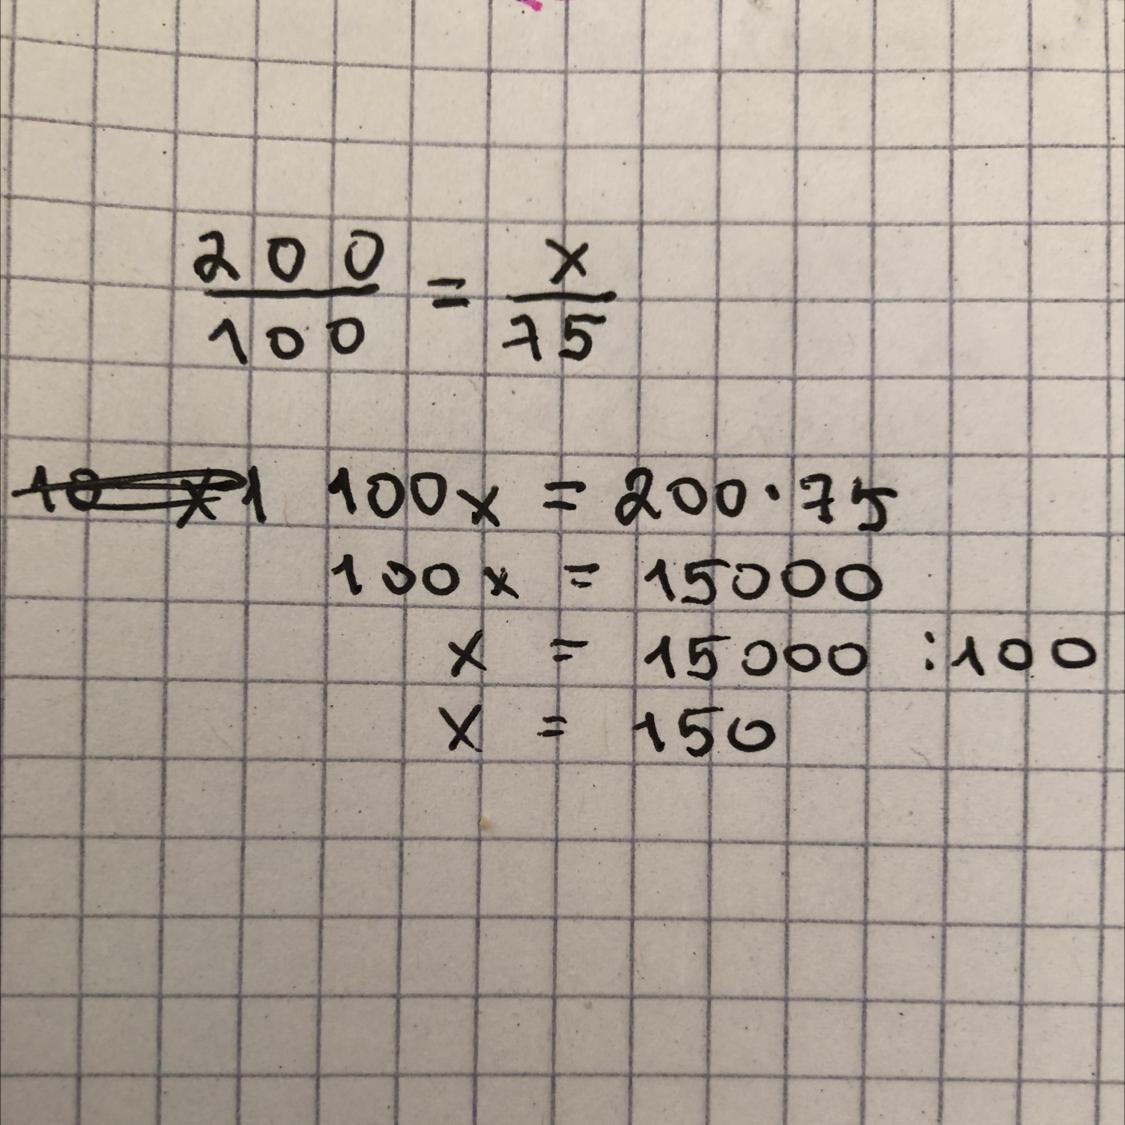 200/100 = x/75
100x = 200·75
100x = 15000
x = 15000 :100
x = 150